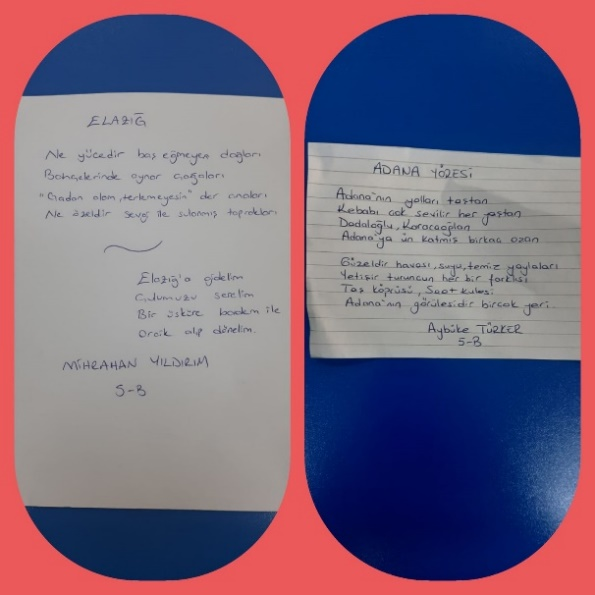 ELAZIĞ
Ne yücedir baş eğmeyen dağları
Bahçelerinde oynar çağaları
"Gadan alam, terlemeyesin" der anaları
Ne özeldir sevgi ile sulanmış toprakları
Elazığ'a gidelim
Çulumuzu serelim
Bir üsküre badem ile
Orcik alıp dönelim.
MİHRAHAN YILDIRIM
5-B
ADANA YÖRESİ
Adana'nın yolları taştan
Kebabı çok sevilir her yaştan
Dadaloğlu, Karacaoğlan
Adana'ya ün katmış birkaç ozan
Güzeldir havası, suyu, temiz yaylaları
Yetişir turuncun her bir farkısı
Taş köprüsü, Saat kulesi
Adana'nın görülesidir birçok yeri.
Aybüke TÜRKER
5-B